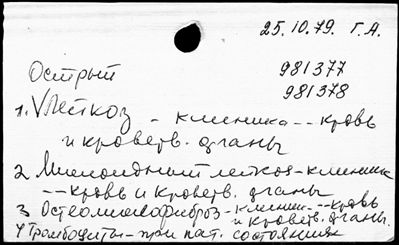 25.10.79. Г.А.
Острый
981377
981378
1. Лейкоз - клиника -- кровь
и кроветв. органы
2. Миелоидный лейкоз - клиника
-- кровь и кроветв. органы
3. Остеомиелофиброз - клиник. -- кровь
и кроветв. органы.
4 Тромбоциты - при пат. состояниях